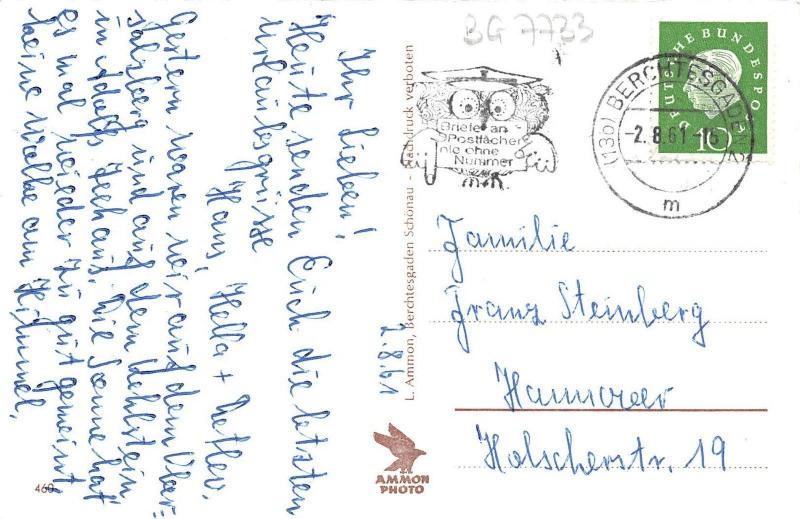 Ihr Lieben!
Heute senden Euch die letzten
Urlaubsgrüsse
Hans, Hella + Detlev.
Gestern waren wir auf dem Ober=
salzberg und auf dem Kehlstein
in Adolfs Teehaus. Die Sonne hat
es mal wieder zu gut gemeint,
keine Wolke am Himmel.
1.8.61
L. Ammon, Berchtesgaden Schönau - Nachdruck verboten
460
AMMON
PHOTO
BG 7733
Briefe an
Postfächer
nie ohne
Nummer
(13b) BERCHTESGADEN 2
-2.8.61-16
m
DEUTSCHE BUNDESPOST
10
Familie
Franz Steinberg
Hannover
Holscherstr. 19